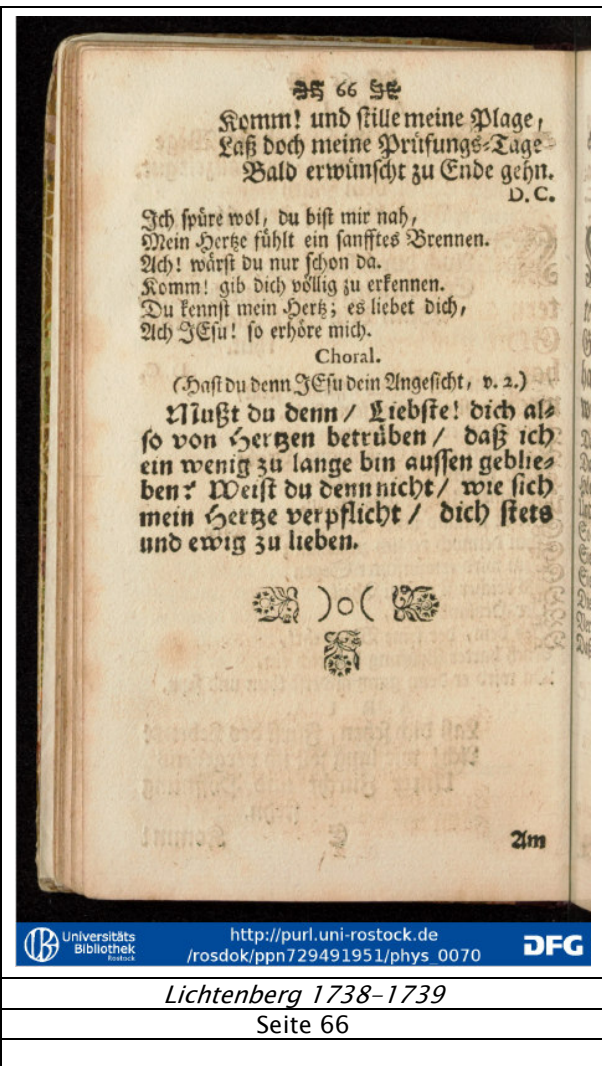 66
Komm! und stille meine Plage,
Laß doch meine Prüfungs-Tage
Bald erwünscht zu Ende gehn.
D. C.
Ich spüre wol, du bist mir nah,
Mein Hertze fühlt ein sanfftes Brennen.
Ach! wärst du nur schon da.
Komm! gib dich völlig zu erkennen.
Du kennst mein Hertz; es liebet dich,
Ach JEsu! so erhöre mich.
Choral.
(Hast du denn JEsu dein Angesicht, v. 2.)
Mußt du denn / Liebste! dich al-
so von Hertzen betrüben / daß ich
ein wenig zu lange bin aussen geblie-
ben? Weist du denn nicht / wie sich
mein Hertze verpflicht / dich stets
und ewig zu lieben.
)o(
Am
Universitäts
Bibliothek
Rostock
http://purl.uni-rostock.de
/rosdok/ppn729491951/phys_0070
DFG
Lichtenberg 1738-1739
Seite 66